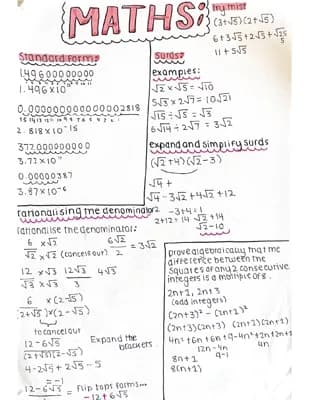 MATHS:
try mist
(3+√5)(2+√5)
6+3√5+2√5+√25
5
11+5√5
Standard form:
1.496 × 10
0.0000000000000002818
2.818×10⁻¹⁵
377,000000000
3.77×10¹¹
0.00000387
3.87×10⁻⁶
Surds:
examples:
√2 × √5 = √10
5√3 × 2√7 = 10√21
√15 ÷ √5 = √3
6√14 ÷ 2√7 = 3√2
expand and simplify surds
(√2+4)(√2-3)
√4+
√4-3√2+4√2+12
-3+4=1
2+12=14 √2+14
√2-10
rationalising the denominator
rationalise the denominator:
6/√2 × √2/√2 (cancel out) 6√2/2 = 3√2
12/√3 × √3/√3 12√3/3 4√3
6/(2+√5) × (2-√5)/(2-√5)
to cancel out
12-6√5
(2+√5)(2-√5)
Expand the
brackets
4-2√5+2√5-5
= -1
12-6√5 = Flip tops forms...
-12+6√5
prove algebraically that the
difference between the
squares of any 2 consecutive
integers is a multiple of 8.
2n+1, 2n+3
(odd integers)
(2n+3)² - (2n+1)²
(2n+3)(2n+3) (2n+1)(2n+1)
4n²+6n+6n+9-4n²+2n+2n+1
12n-4n 4n
9-1
8n+1
8(n+1)